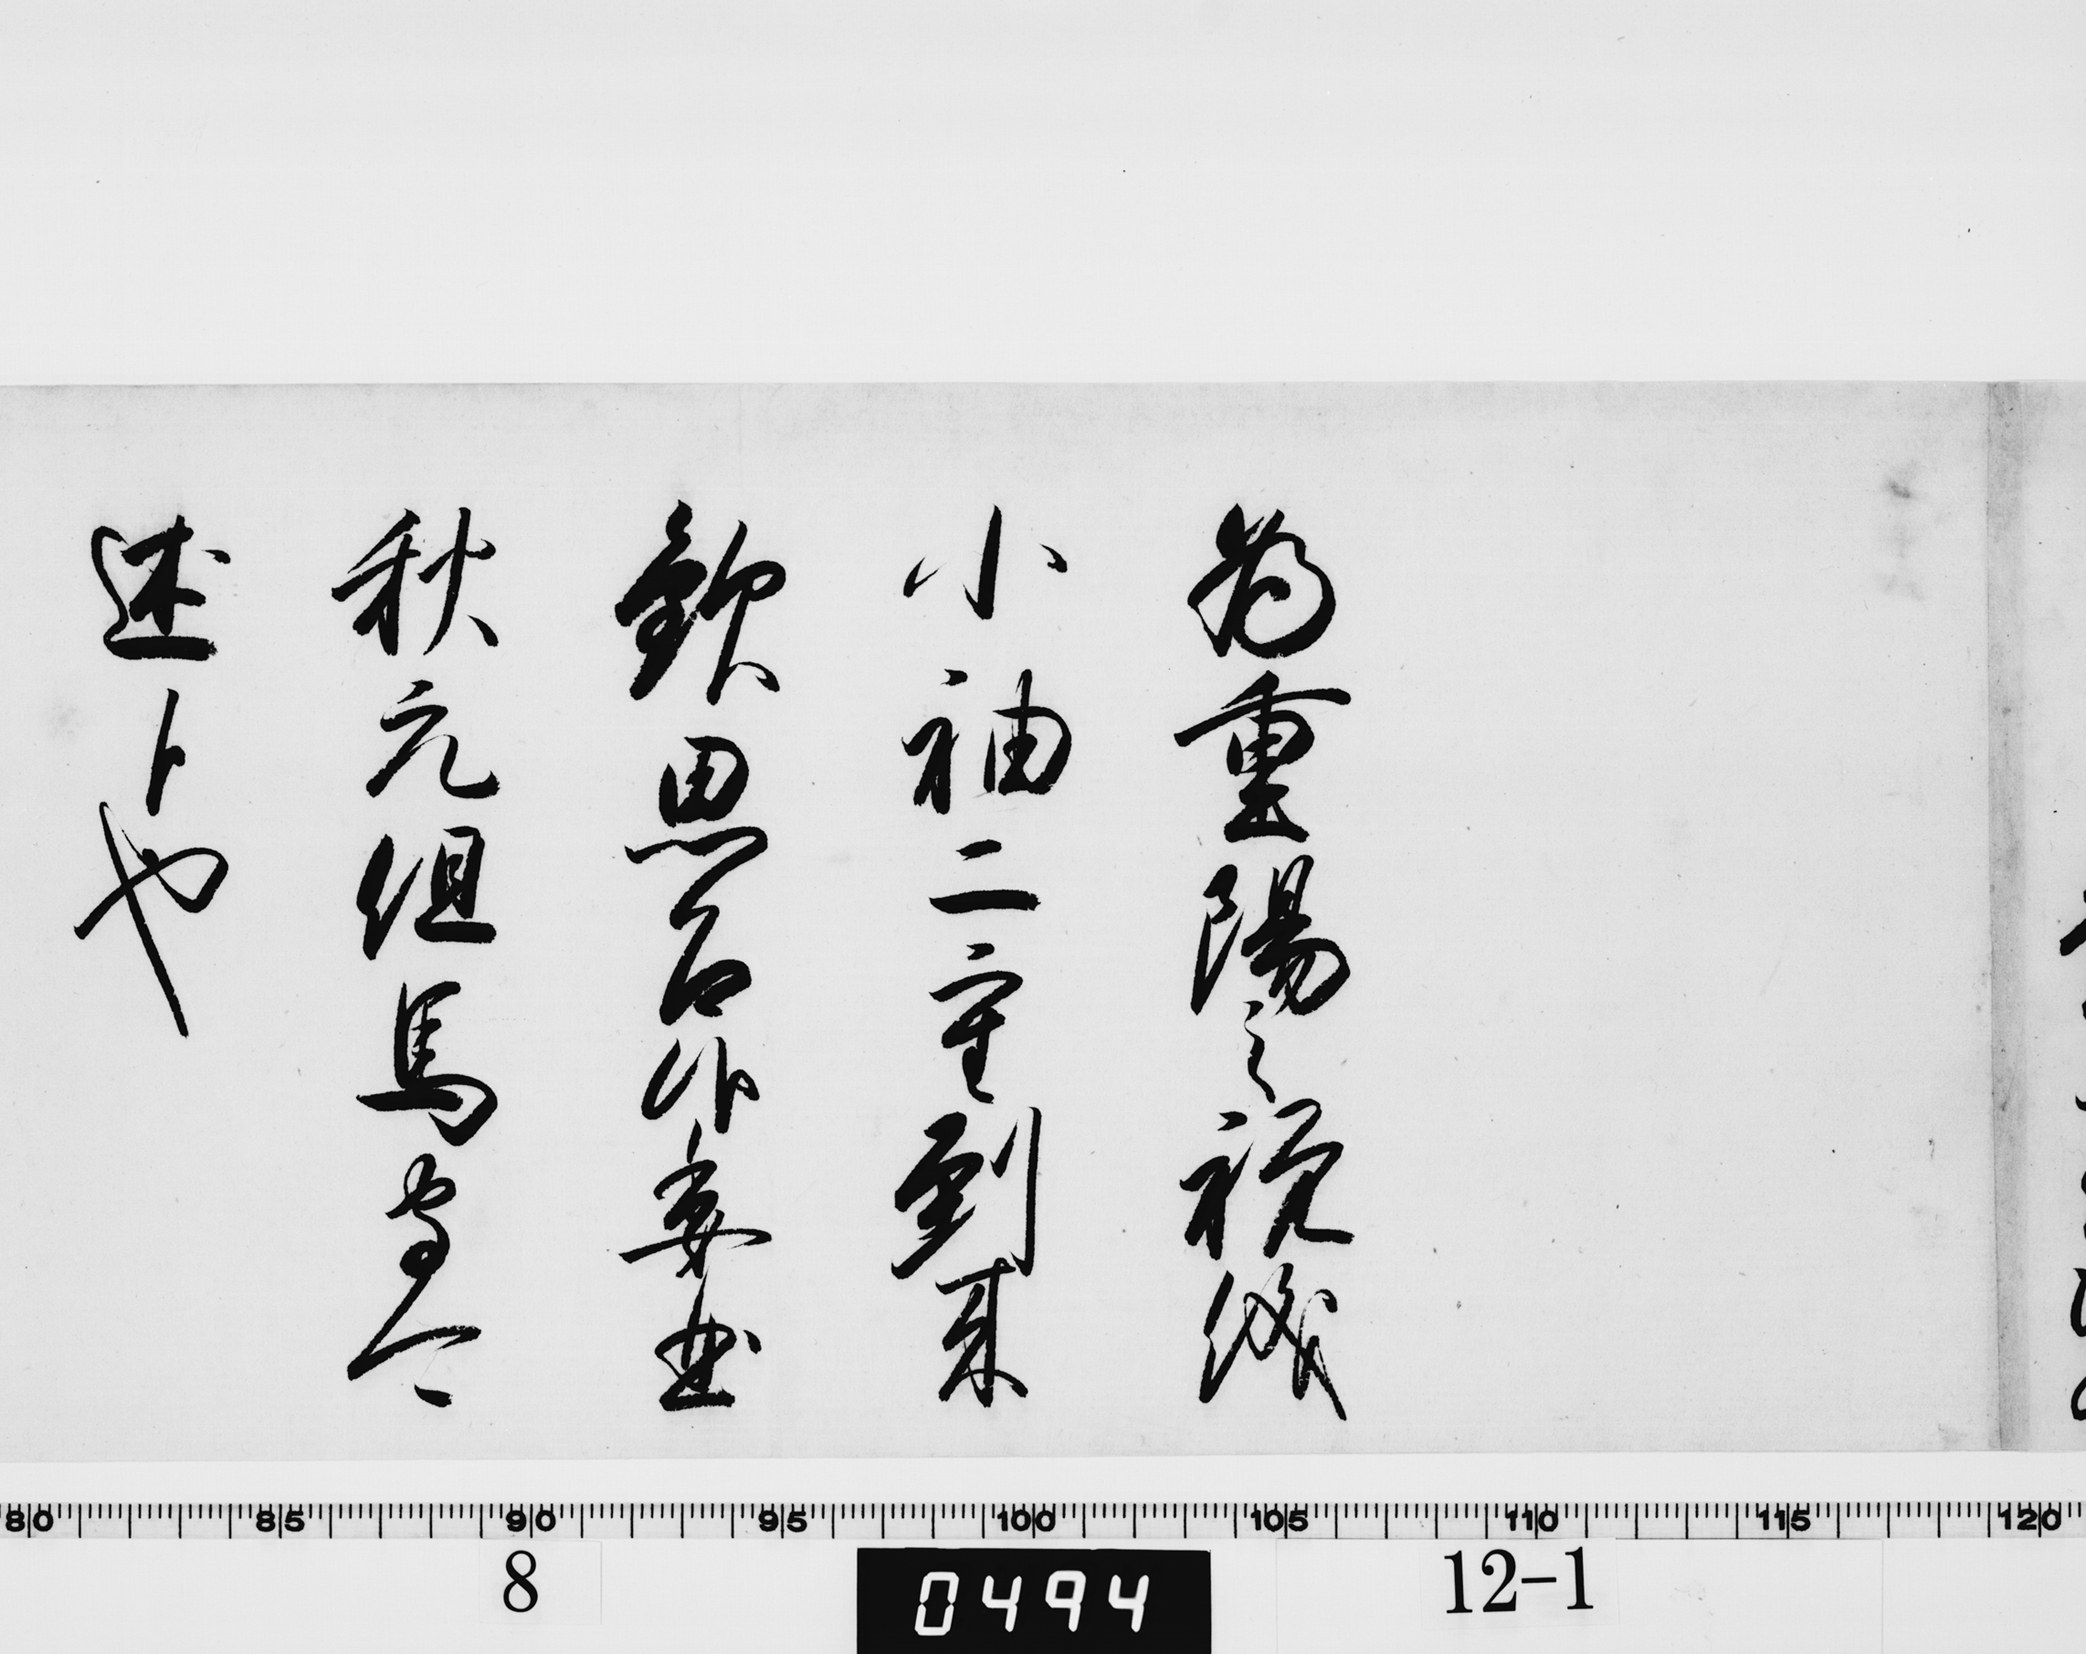 為重陽之祝儀
小袖二重到来
歓思召候委曲
秋元但馬守可
述候也
80 85 90 95 100 105 110 115 120
8 0494 12-1